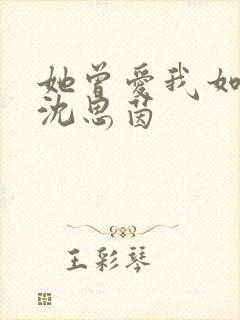 她曾爱我如
沈思茵
王彩琴